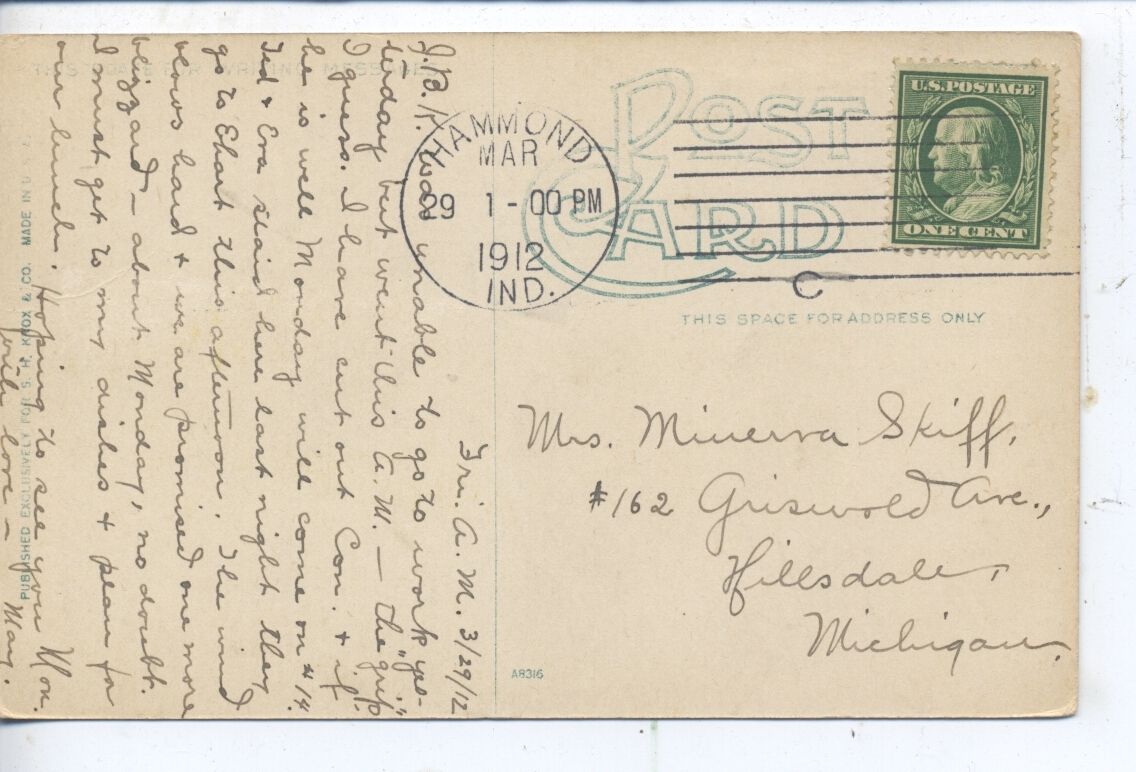 THIS SPACE FOR WRITING MESSAGES
Fri. A.M. 3/29/12
J.B.K. was unable to go to work yes-
terday but went this A.M. – the "grip"
I guess. I have cut out Con. & if
he is well Monday will come on #14.
Ted & Eva staid here last night they
go to Elhart this afternoon. The wind
blows hard & we are promised one more
blizzard – about Monday, no doubt.
I must get to my dishes & plan for
our lunch. Hoping to see you Mon.
with love – May.
PUBLISHED EXCLUSIVELY FOR S. H. KNOX & CO. MADE IN U
HAMMOND
MAR
29 1-00 PM
1912
IND.
POST
CARD
C
U.S. POSTAGE
ONE CENT
THIS SPACE FOR ADDRESS ONLY
Mrs. Minerva Skiff,
#162 Griswold Ave.,
Hillsdale,
Michigan.
A8316